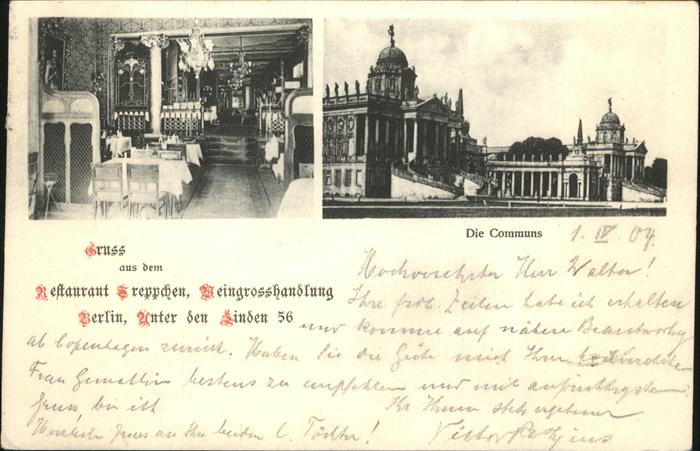 Die Communs
1. IV. 04.
Gruss
aus dem
Restaurant Treppchen, Weingrosshandlung
Berlin, Unter den Linden 56
Hochverehrter Herr Walter!
Ihre frdl. Zeilen habe ich erhalten
und komme auf nähere Beantwortg
ab Copenhagen zurück. Haben Sie die Güte mich Ihrer
Frau Gemahlin bestens zu empfehlen und mit aufrichtigstem
Gruss, bin ich Ihr Ihnen stets ergebener
Herzliche Grüsse an Ihre beiden l. Töchter! Victor